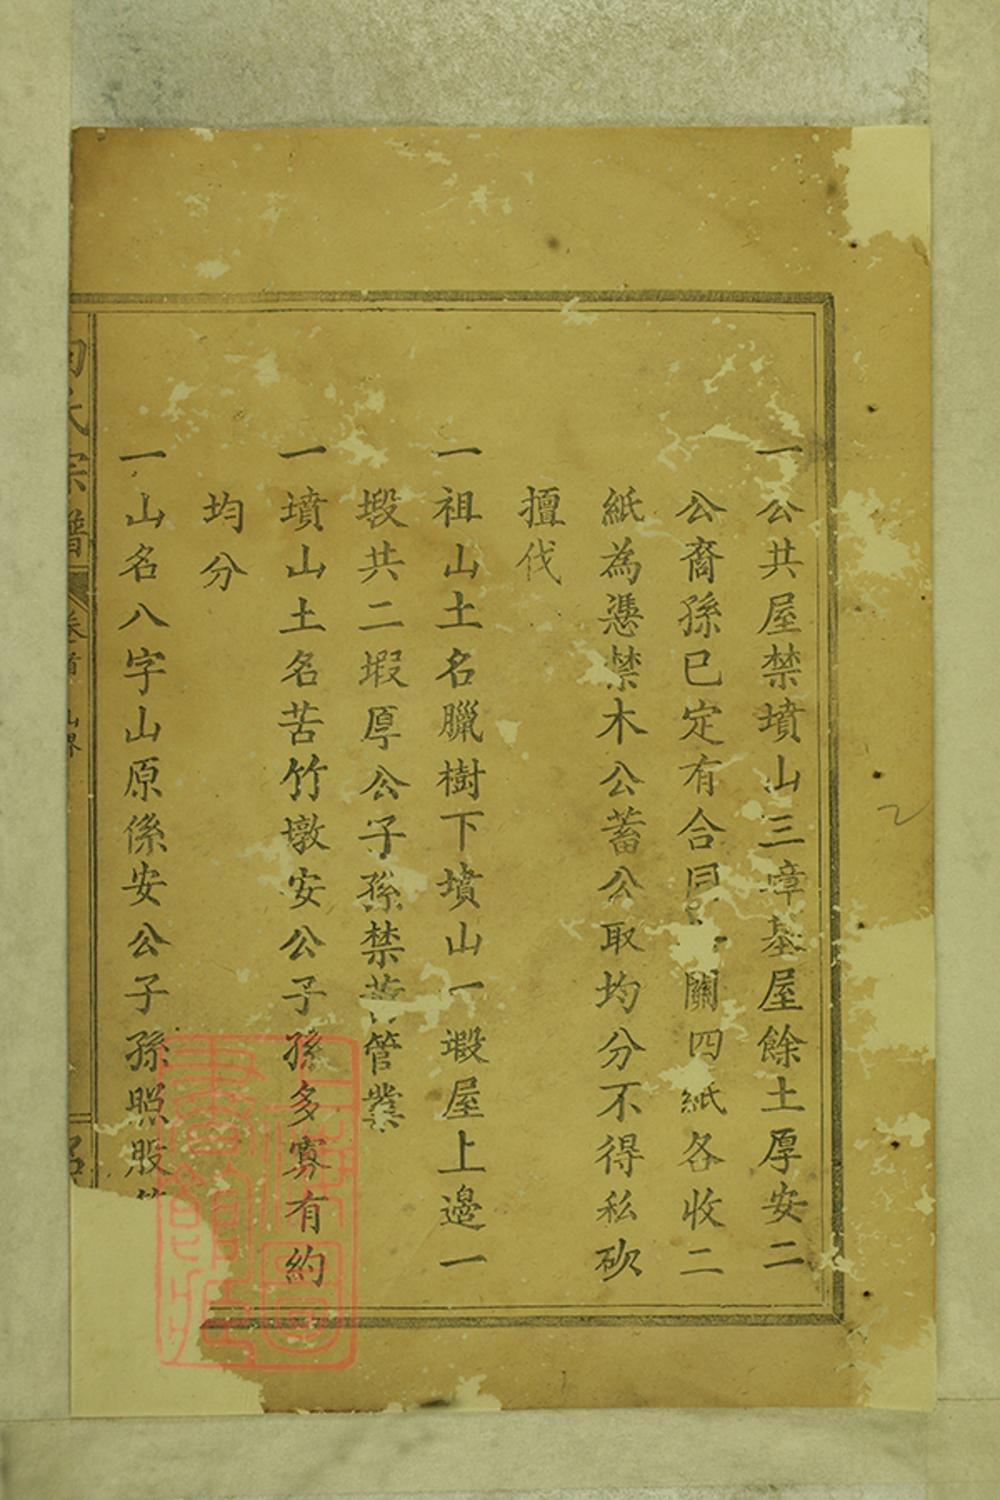 一公共屋禁墳山三嶂基屋餘土厚安二
公裔孫已定有合同關四紙各收二
紙為憑禁木公蓄公取均分不得私砍
擅伐
一祖山土名臘樹下墳山一塅屋上邊一
塅共二塅厚公子孫禁管業
一墳山土名苦竹墩安公子孫多寡有約
均分
一山名八字山原係安公子孫照股
氏宗譜
卷首
山界
上海圖書館藏